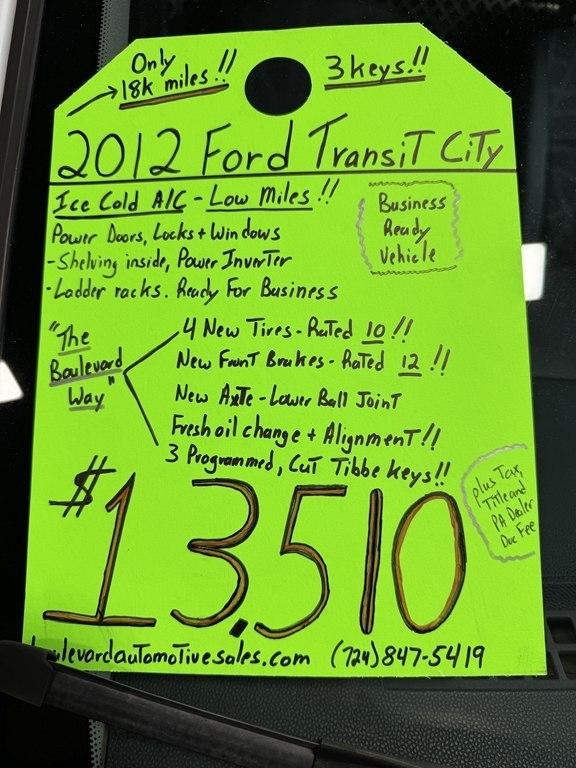 Only
18k miles!!
3 keys!!
2012 Ford Transit City
Ice Cold A/C - Low Miles!!
Power Doors, Locks + Windows
- Shelving inside, Power Inverter
- Ladder racks. Ready For Business
Business
Ready
Vehicle
"The
Boulevard
Way"
4 New Tires - Rated 10!!
New Front Brakes - Rated 12!!
New Axle - Lower Ball Joint
Fresh oil change + Alignment!!
3 Programmed, Cut Tibbe keys!!
$13,510
plus Tax,
Title and
PA Dealer
Doc Fee
boulevardautomotivesales.com (724)847-5419